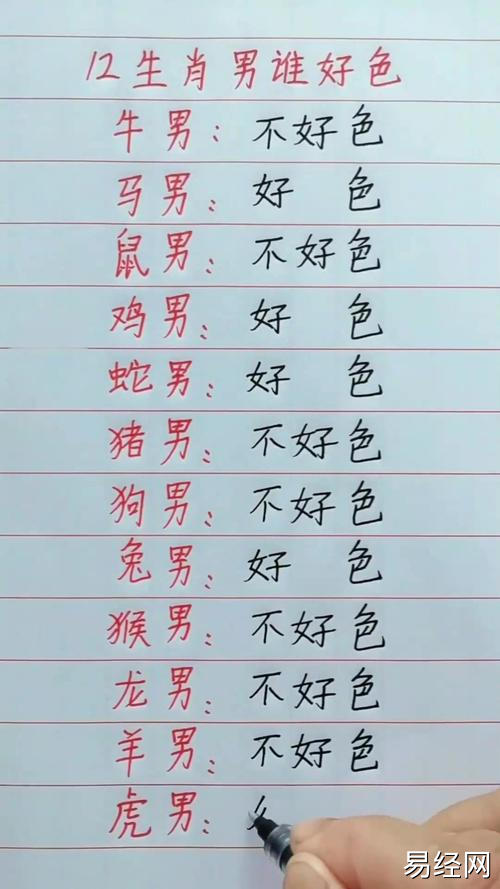 12生肖男谁好色
牛男：不好色
马男：好 色
鼠男：不好色
鸡男：好 色
蛇男：好 色
猪男：不好色
狗男：不好色
兔男：好 色
猴男：不好色
龙男：不好色
羊男：不好色
虎男：
易经网